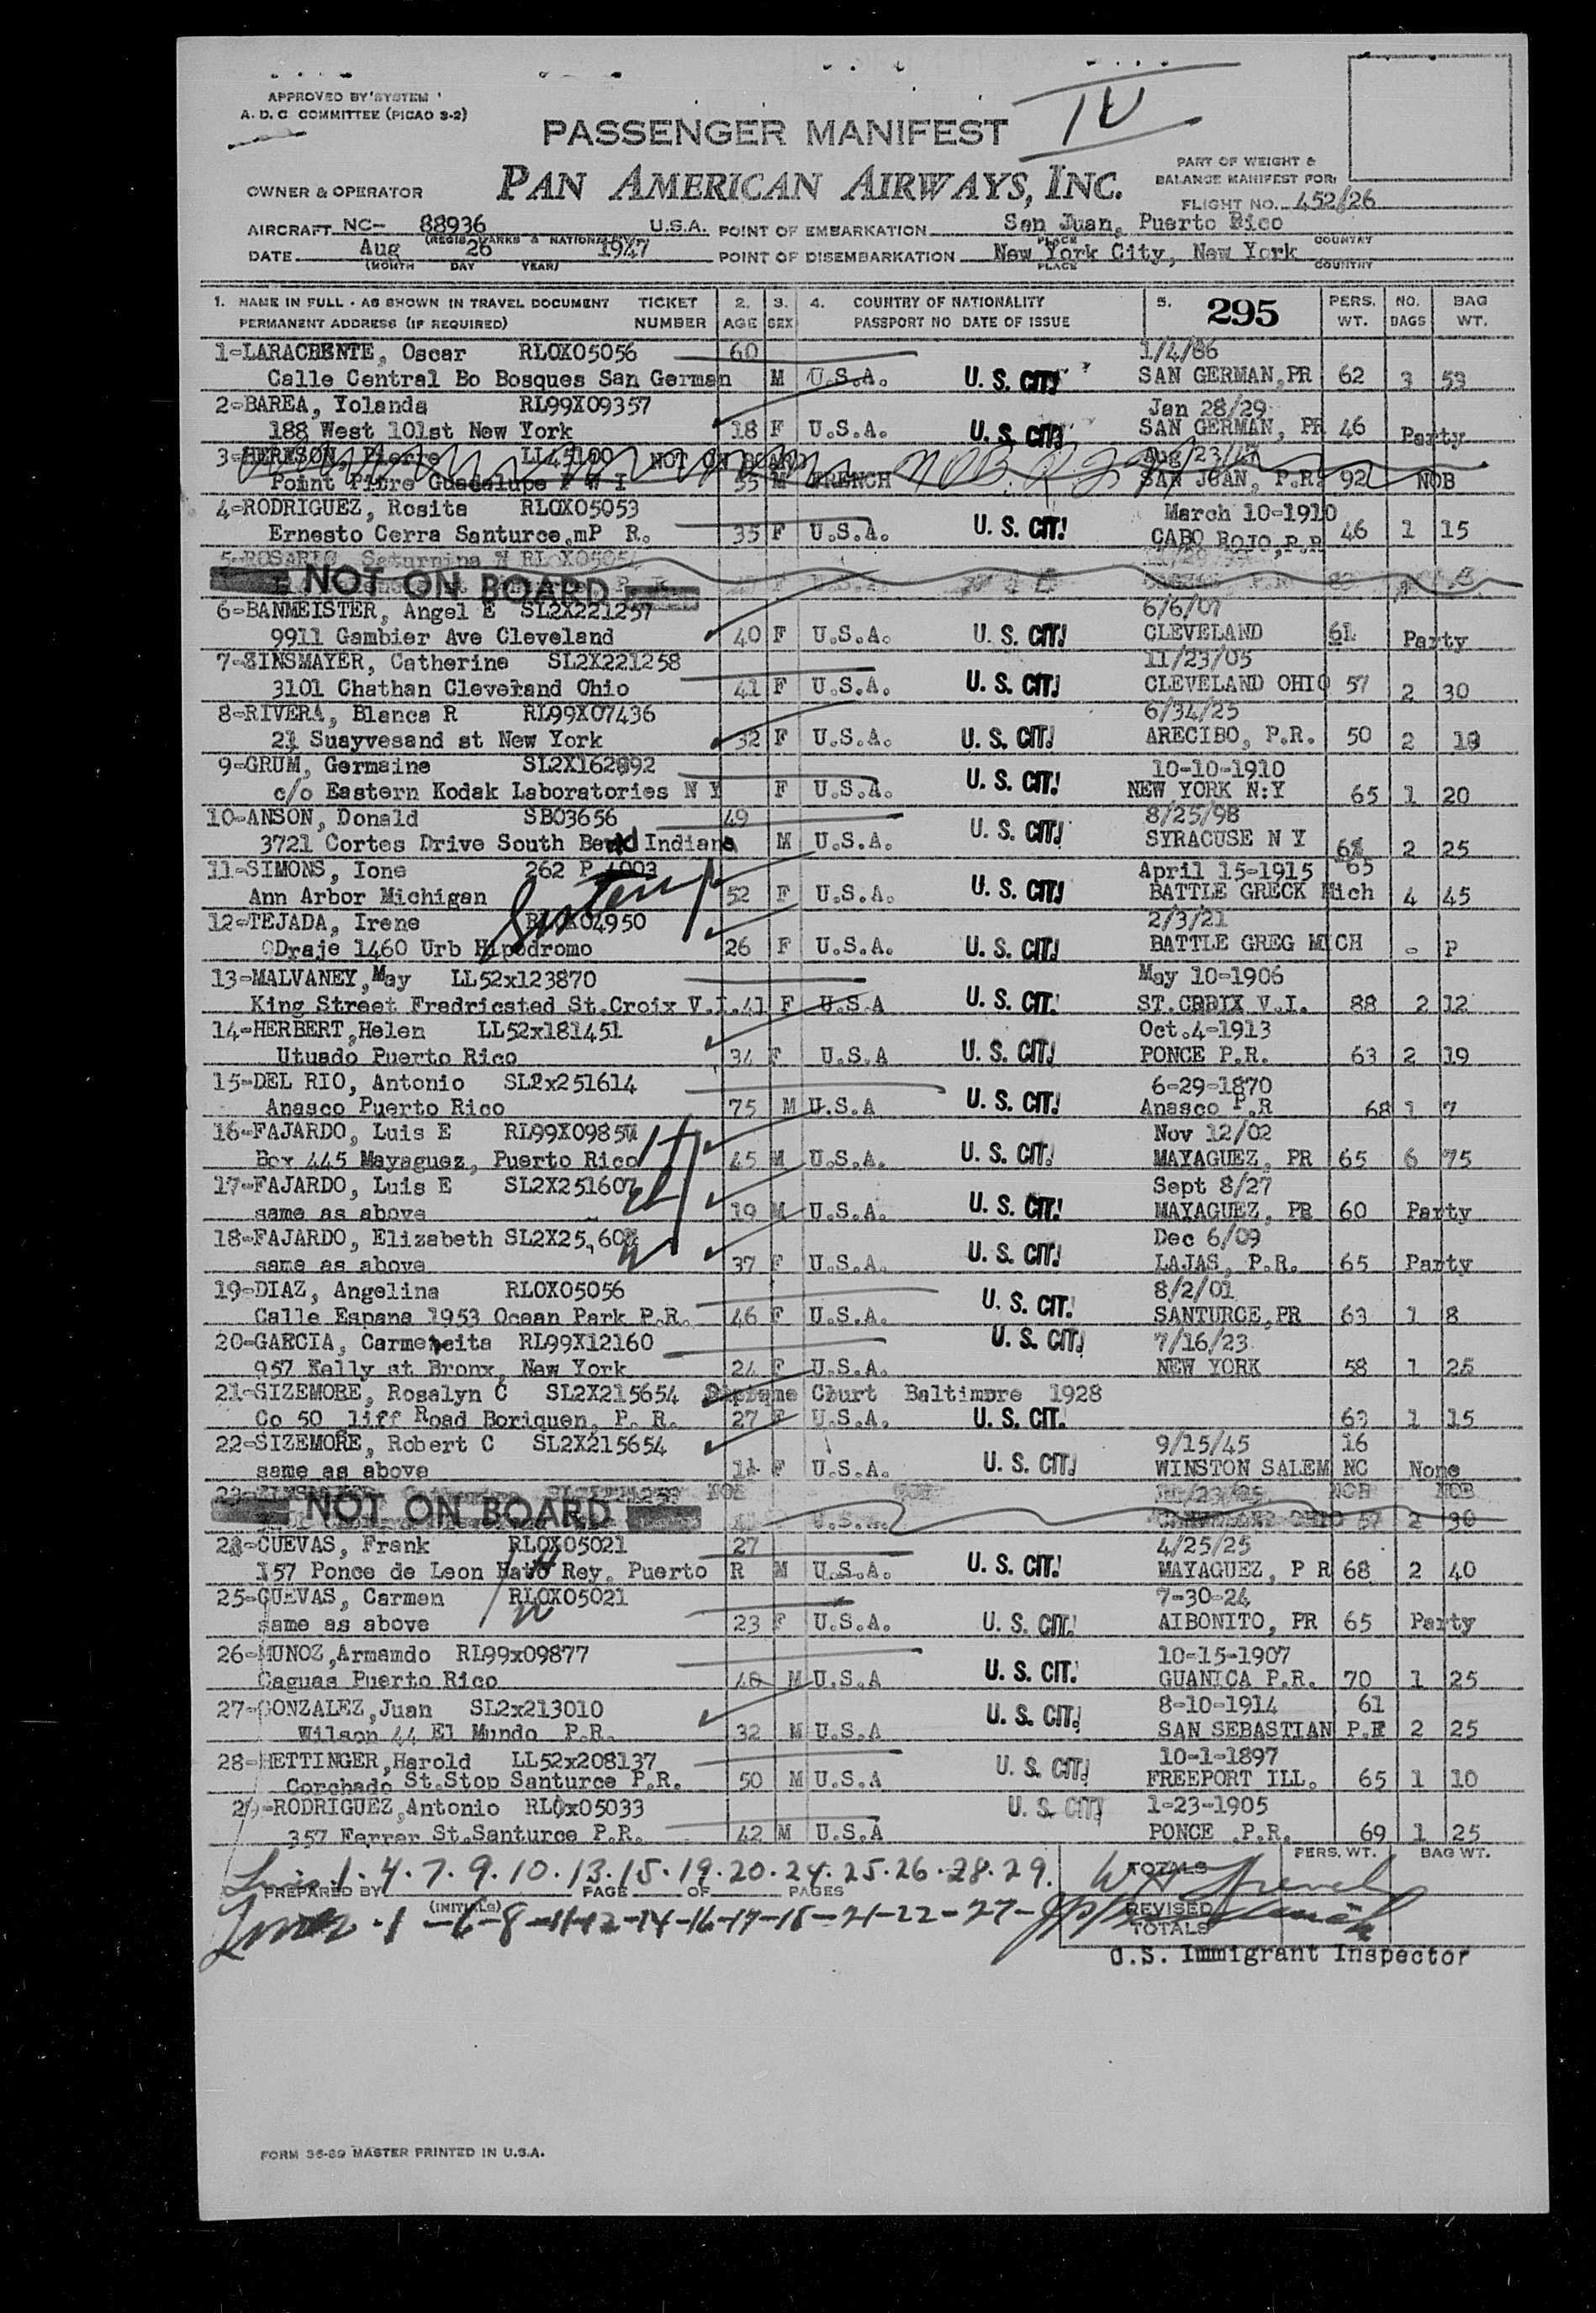 APPROVED BY SYSTEM
A. D. C COMMITTEE (PICAO S-2)
IV
PASSENGER MANIFEST
PAN AMERICAN AIRWAYS, INC.
PART OF WEIGHT &
BALANCE MANIFEST FOR:
OWNER & OPERATOR
FLIGHT NO. 452/26
AIRCRAFT NC- 88936 U.S.A. POINT OF EMBARKATION San Juan, Puerto Rico
(REGIS. MARKS & NATIONALITY) PLACE COUNTRY
DATE Aug 26 1947 POINT OF DISEMBARKATION New York City, New York
(MONTH DAY YEAR) PLACE COUNTRY
1. NAME IN FULL - AS SHOWN IN TRAVEL DOCUMENT TICKET 2. 3. 4. COUNTRY OF NATIONALITY 5. 295 PERS. NO. BAG
PERMANENT ADDRESS (IF REQUIRED) NUMBER AGE SEX PASSPORT NO DATE OF ISSUE WT. BAGS WT.
1-LARACRENTE, Oscar RLOX05056 60 1/4/86
Calle Central Bo Bosques San German M U.S.A. U. S. CIT! SAN GERMAN,PR 62 3 53
2-BAREA, Yolanda RL99X09357 Jan 28/29
188 West 101st New York 18 F U.S.A. U. S. CIT! SAN GERMAN, PR 46 Party
3- Pierre LL45100 NOT ON BOARD NOB Aug 23/
Point Pitre Guadalupe F W I 55 M FRENCH SAN JUAN, P.R. 92 NOB
4-RODRIGUEZ, Rosita RLOX05053 March 10-1910
Ernesto Cerra Santurce,mP R. 35 F U.S.A. U. S. CIT! CABO ROJO,P.R 46 1 15
5-ROSARIO, Saturnina
NOT ON BOARD F U.S.A.
6-BANMEISTER, Angel E SL2X221257 6/6/07
9911 Gambier Ave Cleveland 40 F U.S.A. U. S. CIT! CLEVELAND 61 Party
7-ZINSMAYER, Catherine SL2X221258 11/23/05
3101 Chathan Cleveland Ohio 41 F U.S.A. U. S. CIT! CLEVELAND OHIO 57 2 30
8-RIVERA, Blanca R RL99X07436 6/34/25
21 Suayvesand st New York 32 F U.S.A. U. S. CIT! ARECIBO, P.R. 50 2 18
9-GRUM, Germaine SL2X162892 10-10-1910
c/o Eastern Kodak Laboratories N Y F U.S.A. U. S. CIT! NEW YORK N:Y 65 1 20
10-ANSON, Donald SB03656 49 8/25/98
3721 Cortes Drive South Bend Indiana M U.S.A. U. S. CIT! SYRACUSE N Y 68 2 25
11-SIMONS, Ione 262 P 4003 April 15-1915 65
Ann Arbor Michigan 52 F U.S.A. U. S. CIT! BATTLE GRECK Mich 4 45
12-TEJADA, Irene RLOX04950 2/3/21
Draje 1460 Urb Hipodromo 26 F U.S.A. U. S. CIT! BATTLE GREG MICH - P
13-MALVANEY,May LL52x123870 May 10-1906
King Street Fredricsted St.Croix V.I.41 F U.S.A U. S. CIT! ST.CROIX V.I. 88 2 12
14-HERBERT,Helen LL52x181451 Oct.4-1913
Utuado Puerto Rico 34 F U.S.A U. S. CIT! PONCE P.R. 63 2 19
15-DEL RIO, Antonio SL2x251614 6-29-1870
Anasco Puerto Rico 75 M U.S.A U. S. CIT! Anasco P.R 68 1 7
16-FAJARDO, Luis E RL99X0985 Nov 12/02
Box 445 Mayaguez, Puerto Rico 45 M U.S.A. U. S. CIT! MAYAGUEZ, PR 65 6 75
17-FAJARDO, Luis E SL2X251607 Sept 8/27
same as above 19 M U.S.A. U. S. CIT! MAYAGUEZ, PR 60 Party
18-FAJARDO, Elizabeth SL2X25,60 Dec 6/09
same as above 37 F U.S.A. U. S. CIT! LAJAS, P.R. 65 Party
19-DIAZ, Angelina RLOX05056 8/2/01
Calle Espana 1953 Ocean Park P.R. 46 F U.S.A. U. S. CIT! SANTURCE,PR 63 1 8
20-GARCIA, Carmeneita RL99X12160 U. S. CIT! 7/16/23
957 Kelly st Bronx, New York 24 F U.S.A. NEW YORK 58 1 25
21-SIZEMORE, Rosalyn C SL2X215654 Court Baltimore 1928
Co 50 liff Road Boriquen, P. R. 27 F U.S.A. U. S. CIT. 63 1 15
22-SIZEMORE, Robert C SL2X215654 9/15/45 16
same as above F U.S.A. U. S. CIT! WINSTON SALEM NC None
23- NOB NOB NOB
NOT ON BOARD U.S.A. CLEVELAND OHIO 57 2 30
24-CUEVAS, Frank RLOX05021 27 4/25/25
157 Ponce de Leon Hato Rey, Puerto R M U.S.A. U. S. CIT! MAYAGUEZ, P R 68 2 40
25-CUEVAS, Carmen RLOX05021 7-30-24
same as above 23 F U.S.A. U. S. CIT! AIBONITO, PR 65 Party
26-MUNOZ,Armamdo RL99x09877 10-15-1907
Caguas Puerto Rico 40 M U.S.A U. S. CIT! GUANICA P.R. 70 1 25
27-GONZALEZ,Juan SL2x213010 8-10-1914 61
Wilson 44 El Mundo P.R. 32 M U.S.A U. S. CIT! SAN SEBASTIAN P.R 2 25
28-HETTINGER,Harold LL52x208137 10-1-1897
Corchado St.Stop Santurce P.R. 50 M U.S.A U. S. CIT! FREEPORT ILL. 65 1 10
29-RODRIGUEZ,Antonio RLOx05033 U. S. CIT! 1-23-1905
357 Ferrer St.Santurce P.R. 42 M U.S.A PONCE .P.R. 69 1 25
1. 4. 7. 9. 10. 13. 15. 19. 20. 24. 25. 26. 28. 29. TOTALS PERS. WT. BAG WT.
PREPARED BY PAGE OF PAGES
(INITIALS)
6-8-11-12-14-16-17-18-21-22-27- REVISED
TOTALS
U.S. Immigrant Inspector
FORM 36-69 MASTER PRINTED IN U.S.A.